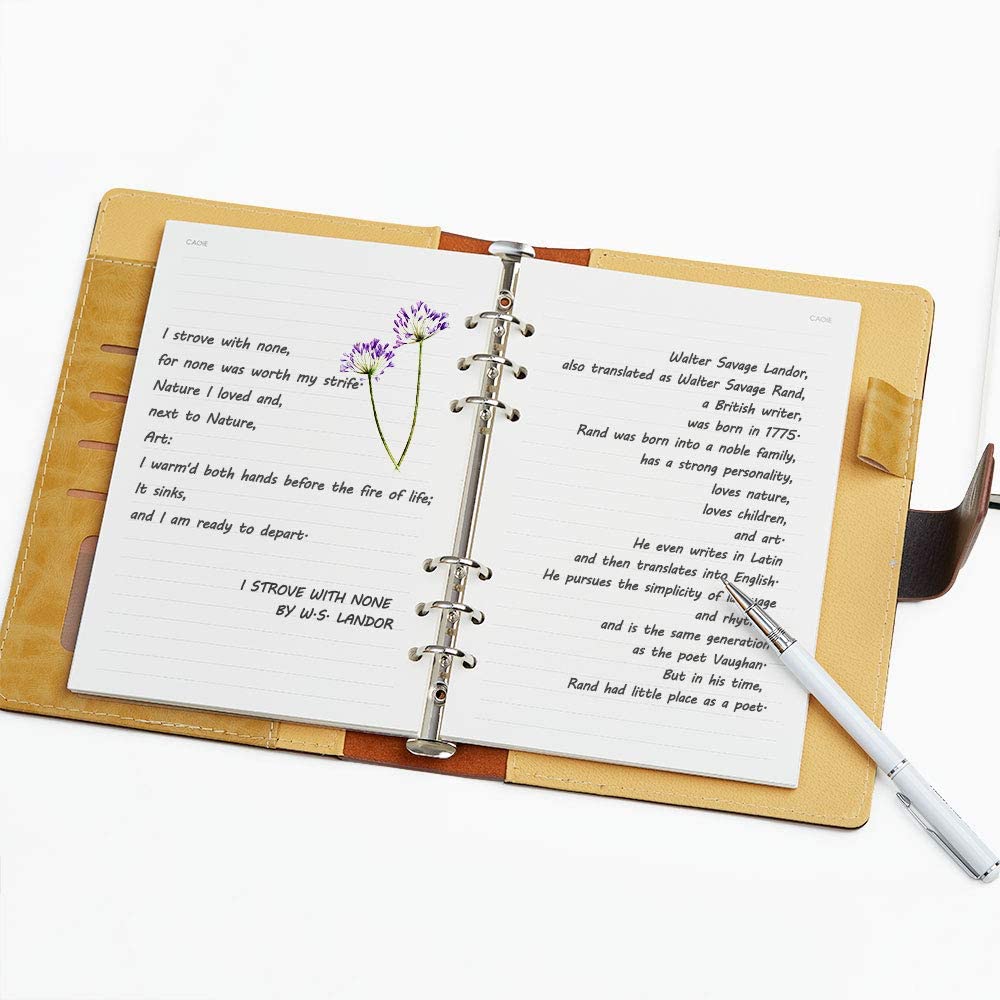 CAGIE
I strove with none,
for none was worth my strife.
Nature I loved and,
next to Nature,
Art:
I warm'd both hands before the fire of life;
It sinks,
and I am ready to depart.
I STROVE WITH NONE
BY W.S. LANDOR
CAGIE
Walter Savage Landor,
also translated as Walter Savage Rand,
a British writer,
was born in 1775.
Rand was born into a noble family,
has a strong personality,
loves nature,
loves children,
and art.
He even writes in Latin
and then translates into English.
He pursues the simplicity of
and
and is the same generation
as the poet Vaughan.
But in his time,
Rand had little place as a poet.